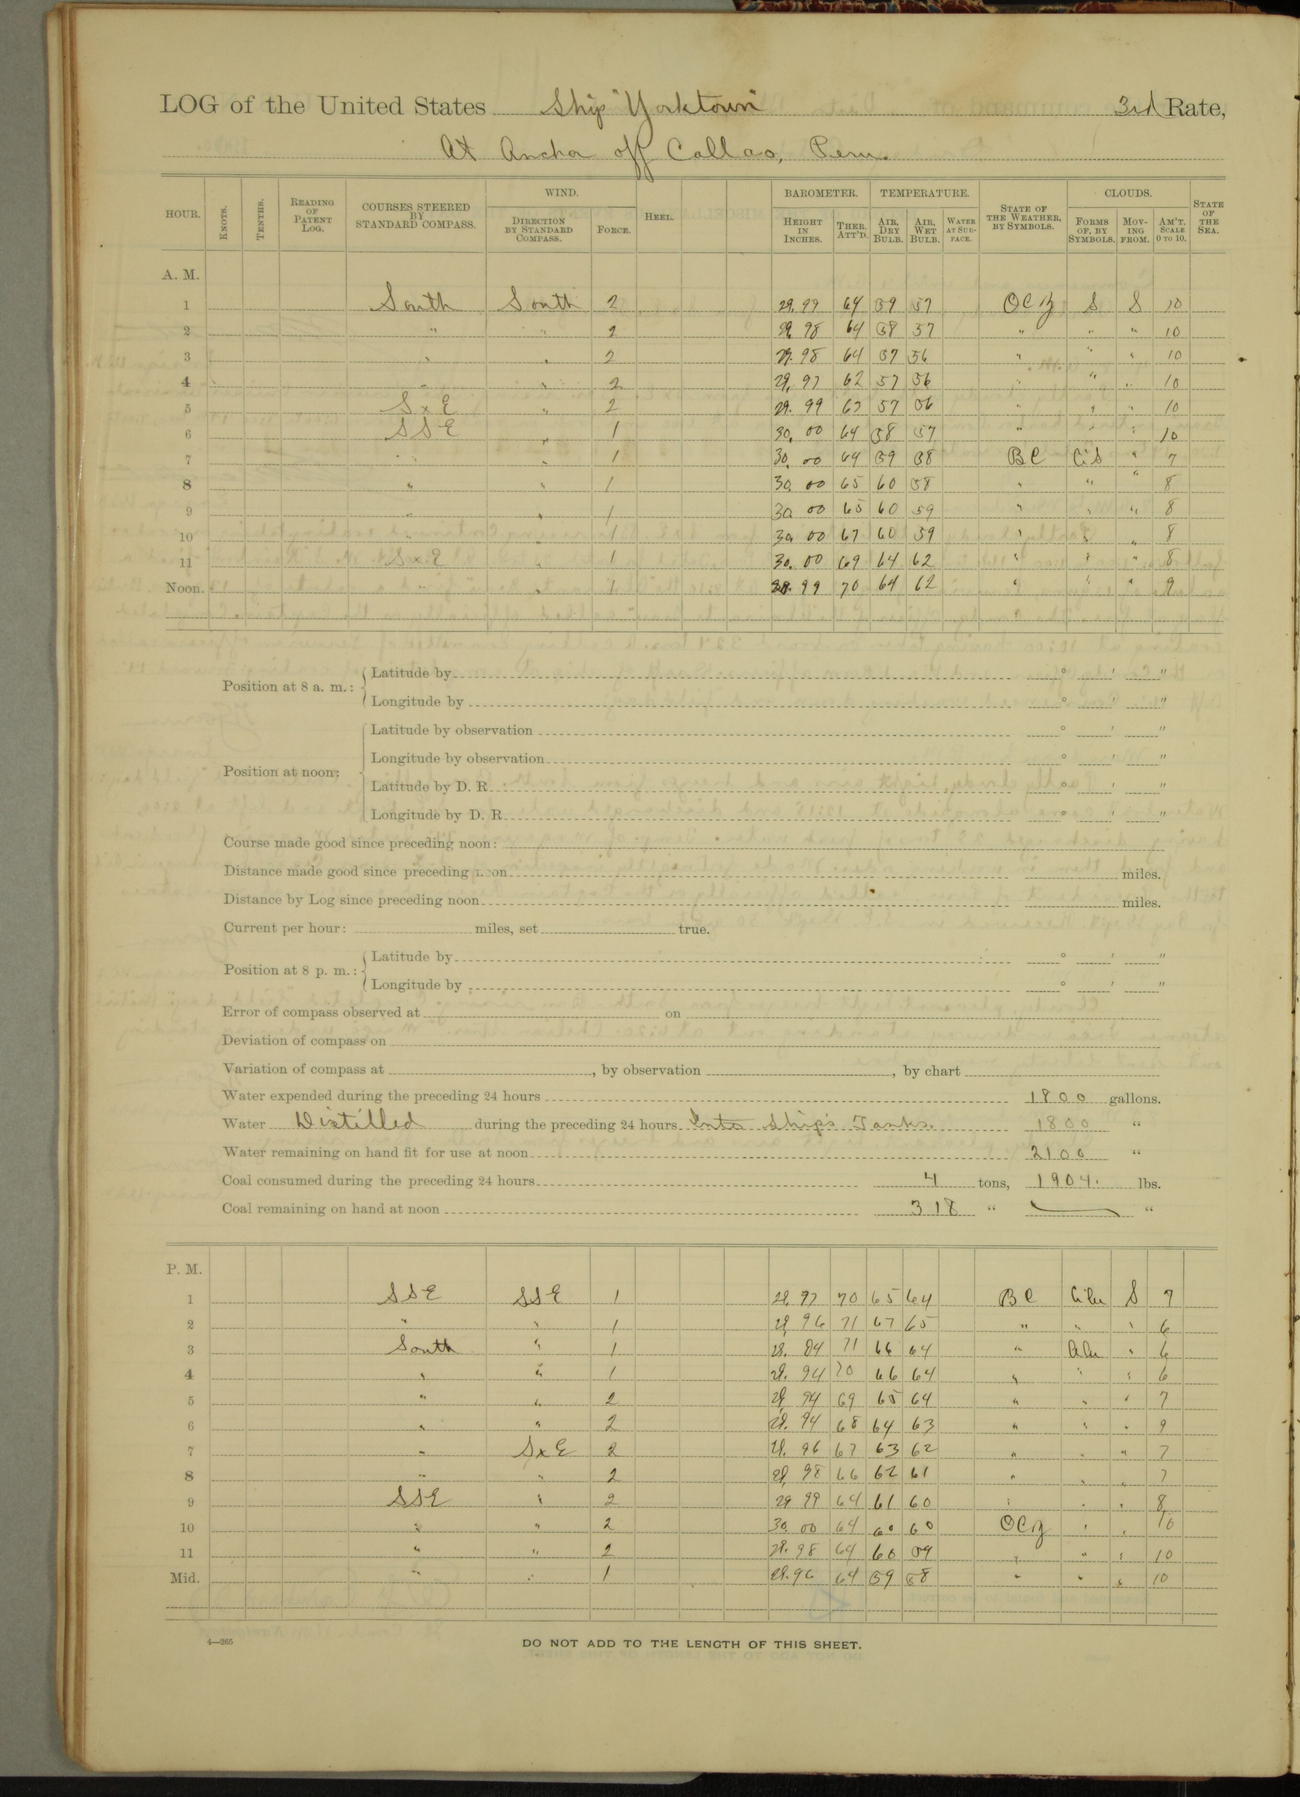 LOG of the United States Ship "Yorktown" 3rd Rate,
At Anchor off Callao, Peru.
HOUR. KNOTS. TENTHS. READING OF PATENT LOG. COURSES STEERED BY STANDARD COMPASS. WIND. DIRECTION BY STANDARD COMPASS. FORCE. HEEL. BAROMETER. HEIGHT IN INCHES. THER. ATT'D. TEMPERATURE. AIR, DRY BULB. AIR, WET BULB. WATER AT SURFACE. STATE OF THE WEATHER, BY SYMBOLS. CLOUDS. FORMS OF, BY SYMBOLS. MOVING FROM. AM'T. SCALE 0 TO 10. STATE OF THE SEA.
A. M.
1 South South 2 29.99 64 59 57 OCZ S S 10
2 " " 2 29 98 64 58 57 " " " 10
3 " " 2 29.98 64 57 56 " " " 10
4 " " 2 29, 97 62 57 56 " " " 10
5 SxE " 2 29. 99 63 57 56 " " " 10
6 SSE " 1 30, 00 64 58 57 " " " 10
7 " " 1 30, 00 64 59 58 BC CiS " 7
8 " " 1 30 00 65 60 58 " " " 8
9 " " 1 30 00 65 60 59 " " " 8
10 " " 1 30 00 67 60 59 " " " 8
11 SxE " 1 30. 00 69 64 62 " " " 8
Noon. " " 1 29. 99 70 64 62 " " " 9
Position at 8 a. m.: Latitude by ° ' "
Longitude by ° ' "
Position at noon: Latitude by observation ° ' "
Longitude by observation ° ' "
Latitude by D. R. ° ' "
Longitude by D. R. ° ' "
Course made good since preceding noon:
Distance made good since preceding noon miles.
Distance by Log since preceding noon miles.
Current per hour: miles, set true.
Position at 8 p. m.: Latitude by ° ' "
Longitude by ° ' "
Error of compass observed at on
Deviation of compass on
Variation of compass at , by observation , by chart
Water expended during the preceding 24 hours 1800 gallons.
Water Distilled during the preceding 24 hours Into Ship's Tanks. 1800 "
Water remaining on hand fit for use at noon 2100 "
Coal consumed during the preceding 24 hours 4 tons, 1904. lbs.
Coal remaining on hand at noon 318 " "
P. M.
1 SSE SSE 1 29, 97 70 65 64 BC CiCu S 7
2 " " 1 29, 96 71 67 65 " " " 6
3 South " 1 29. 94 71 66 64 " " 6
4 " " 1 29. 94 70 66 64 " " " 6
5 " " 2 29 94 69 65 64 " " " 7
6 " " 2 29. 94 68 64 63 " " " 9
7 " SxE 2 29. 96 67 63 62 " " " 7
8 " " 2 29, 98 66 62 61 " " " 7
9 SSE " 2 29 99 64 61 60 " " " 8
10 " " 2 30. 00 64 60 60 OCZ " " 10
11 " " 2 29. 98 64 60 59 " " " 10
Mid. " " 1 29.96 64 59 58 " " " 10
4—265
DO NOT ADD TO THE LENGTH OF THIS SHEET.